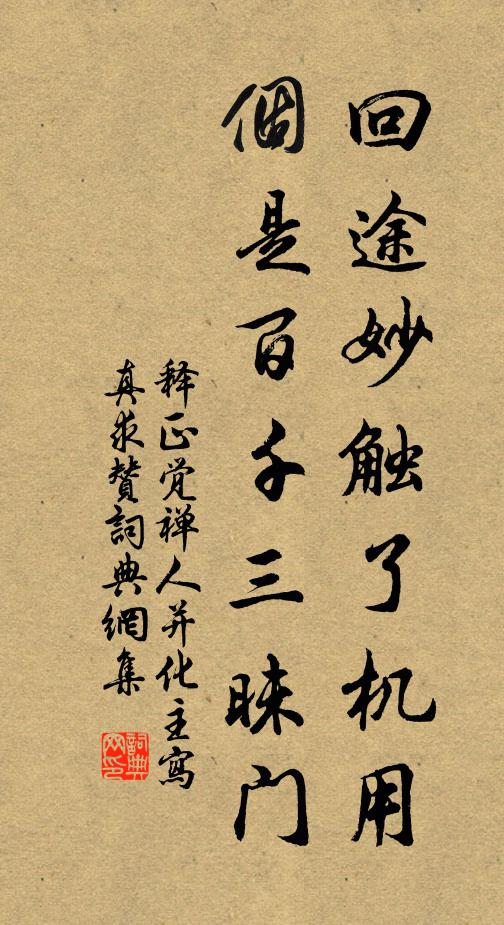 回途妙触了机用
個是百千三昧门
释正觉禅人并化主寫
真求赞詞典網集
詞典网印